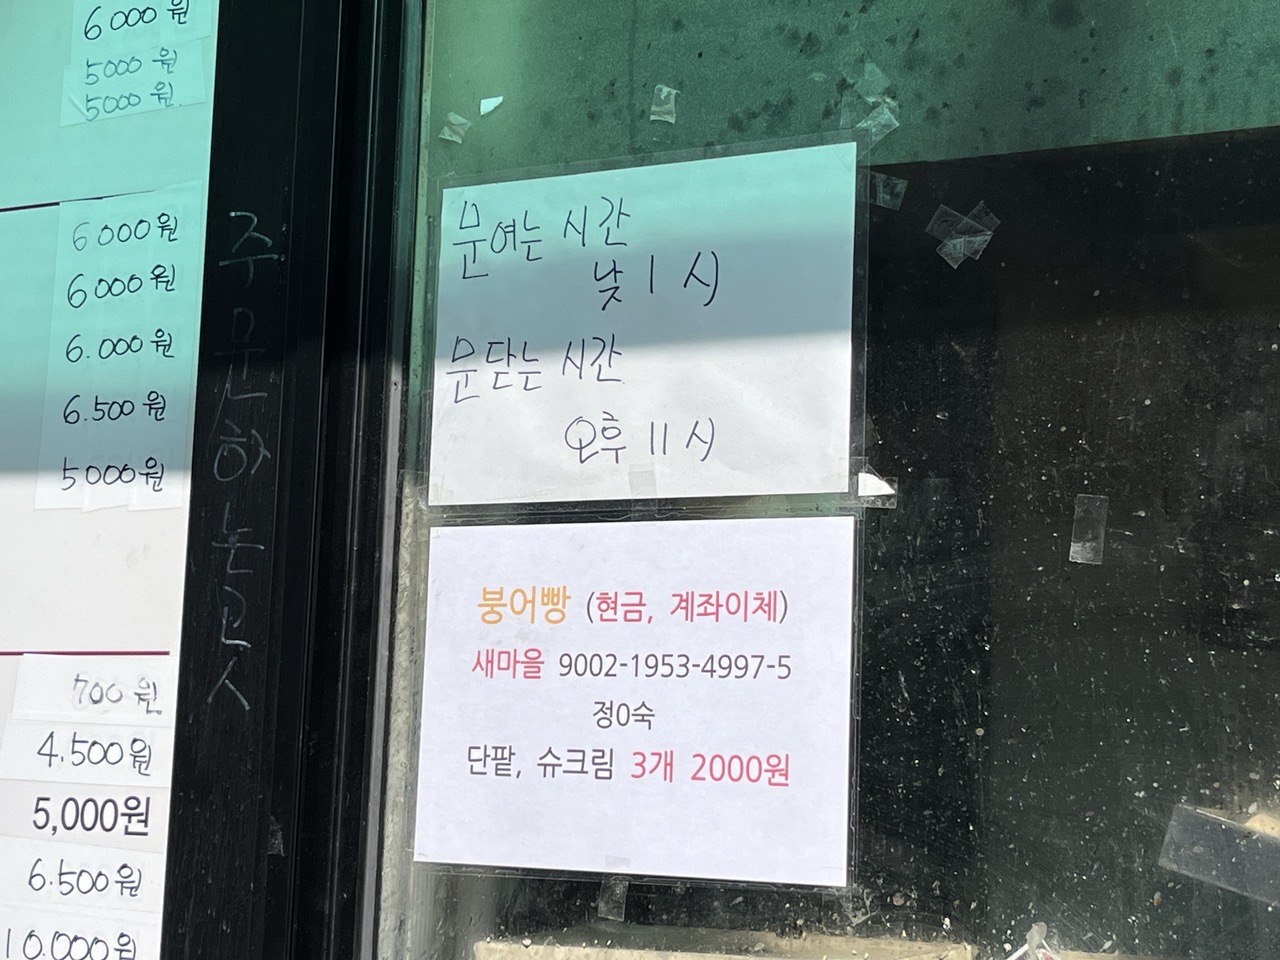 6000원
5000원
5000원
6000원
6000원
6.000원
6.500원
5000원
700원
4.500원
5,000원
6.500원
10.000원
주문하는곳
문여는 시간
낮 1 시
문닫는 시간
오후 11 시
붕어빵 (현금, 계좌이체)
새마을 9002-1953-4997-5
정0숙
단팥, 슈크림 3개 2000원